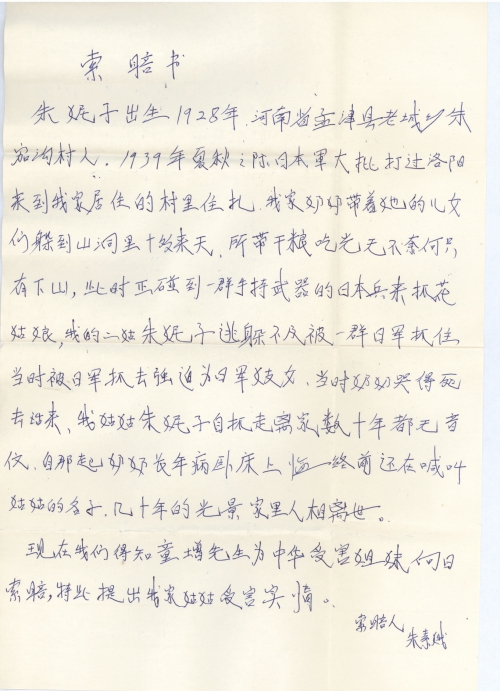 索赔书
朱妮子出生1928年，河南省孟津县老城乡朱
家沟村人，1939年夏秋之际日本軍大批打过洛阳
来到我家居住的村里住扎，我家奶奶带着她的儿女
们躲到山洞里十数来天，所带干粮吃光无奈何只
有下山，此时正碰到一群手持武器的日本兵来抓花
姑娘，我的二姑朱妮子逃躲不及被一群日军抓住
当时被日軍抓去强迫为日軍妓女，当时奶奶哭得死
去活来，我姑姑朱妮子自抓走离家数十年都无音
伩，自那起奶奶长年病卧床上临终前还在喊叫
姑姑的名子，几十年的光景家里人相离世。
现在我们得知童增先生为中华受害姐妹向日
索赔，特此提出我家姑姑受害实情。
索赔人
朱素